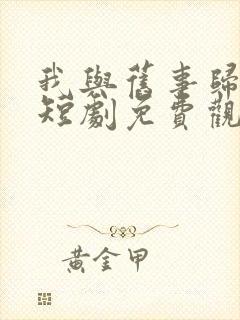 我與舊事歸
短劇免費觀
黃金甲